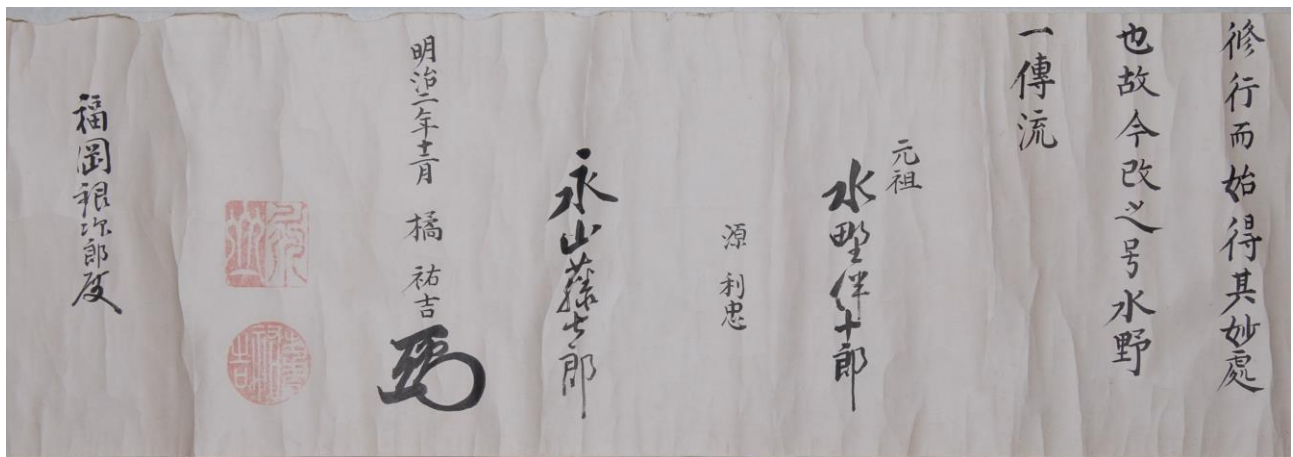 修行而始得其妙處
也故今改之号水野
一傳流
元祖
水野伴十郎
源利忠
永山藤七郎
明治二年十二月 橘祐吉
福岡銀次郎殿